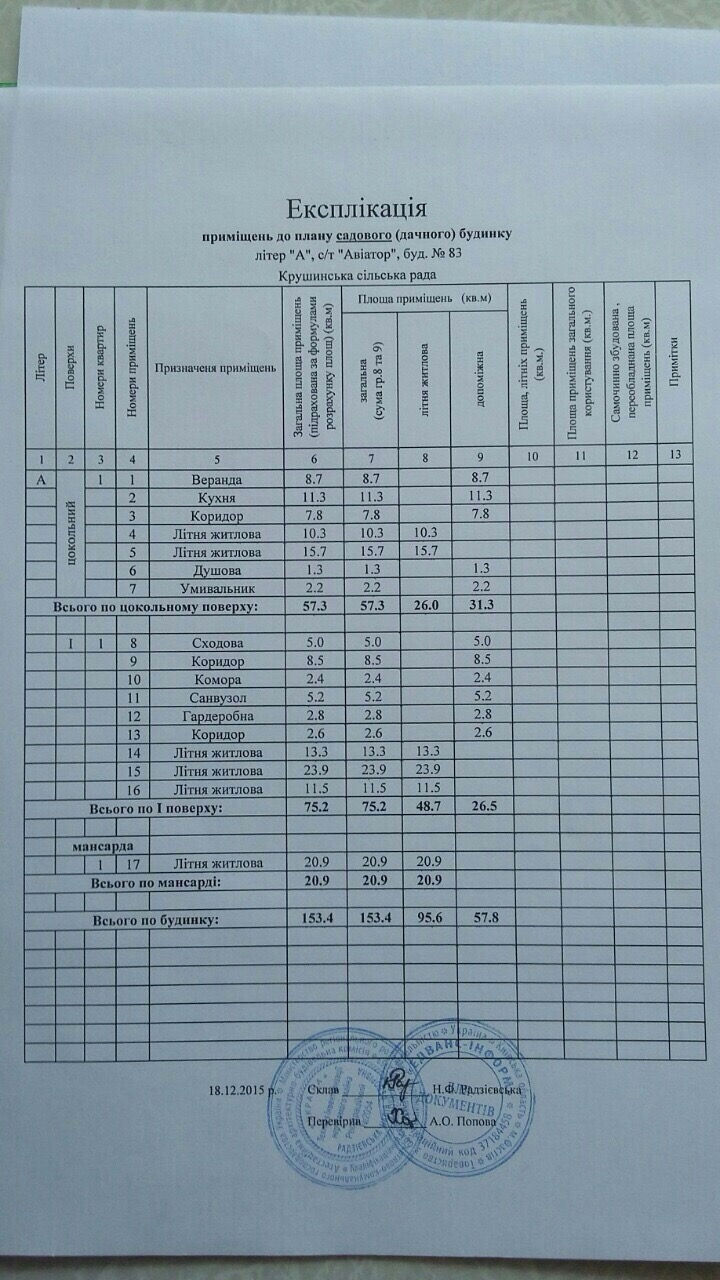 Експлікація
приміщень до плану садового (дачного) будинку
літер "А", с/т "Авіатор", буд. № 83
Крушинська сільська рада
Літер
Поверхи
Номери квартир
Номери приміщень
Призначеня приміщень
Загальна площа приміщень (підрахована за формулами розрахунку площ) (кв.м)
Площа приміщень (кв.м)
загальна (сума гр.8 та 9)
літня житлова
допоміжна
Площа, літніх приміщень (кв.м.)
Площа приміщень загального користування (кв.м.)
Самочинно збудована, переобладнана площа приміщень (кв.м)
Примітки
1 2 3 4 5 6 7 8 9 10 11 12 13
А цокольний 1 1 Веранда 8.7 8.7 8.7
2 Кухня 11.3 11.3 11.3
3 Коридор 7.8 7.8 7.8
4 Літня житлова 10.3 10.3 10.3
5 Літня житлова 15.7 15.7 15.7
6 Душова 1.3 1.3 1.3
7 Умивальник 2.2 2.2 2.2
Всього по цокольному поверху: 57.3 57.3 26.0 31.3
I 1 8 Сходова 5.0 5.0 5.0
9 Коридор 8.5 8.5 8.5
10 Комора 2.4 2.4 2.4
11 Санвузол 5.2 5.2 5.2
12 Гардеробна 2.8 2.8 2.8
13 Коридор 2.6 2.6 2.6
14 Літня житлова 13.3 13.3 13.3
15 Літня житлова 23.9 23.9 23.9
16 Літня житлова 11.5 11.5 11.5
Всього по I поверху: 75.2 75.2 48.7 26.5
мансарда
1 17 Літня житлова 20.9 20.9 20.9
Всього по мансарді: 20.9 20.9 20.9
Всього по будинку: 153.4 153.4 95.6 57.8
18.12.2015 р. Склав Н.Ф. Радзієвська
Перевірив А.О. Попова
ДОКУМЕНТІВ